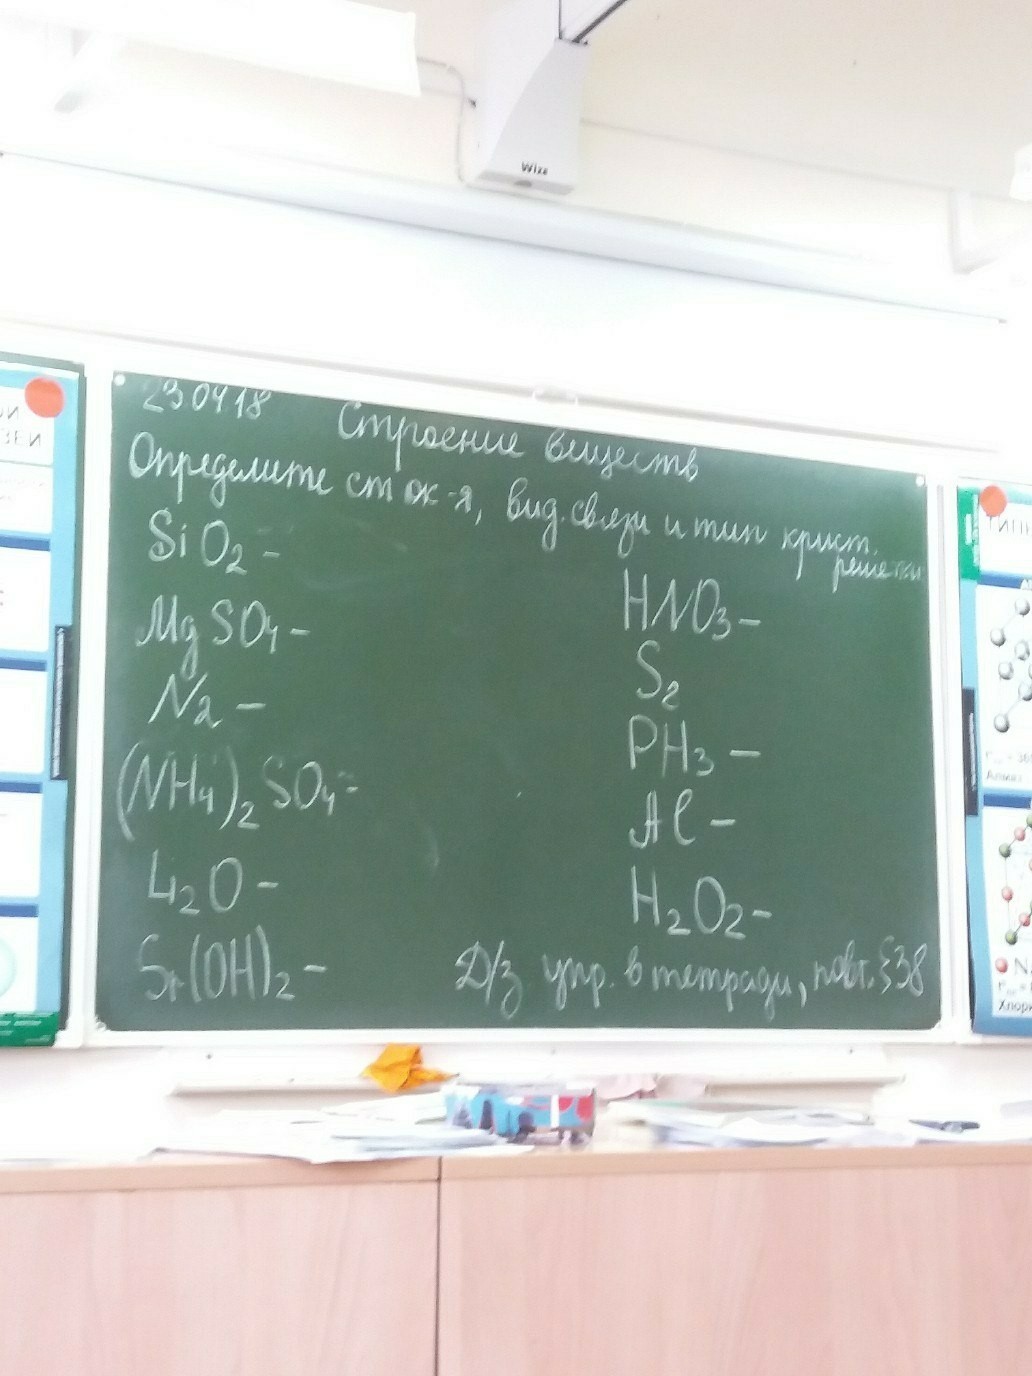 Wizz
230418
Строение веществ
Определите ст ок-я, вид. связи и тип крист.
решетки
SiO2 -
MgSO4 -
N2 -
(NH4)2 SO4 -
Li2O -
Sr(OH)2 -
HNO3 -
S2
PH3 -
Al -
H2O2 -
Д/з упр. в тетради, повт. §38
ЗЕИ
ТИП
Алмаз
Na
Хлори